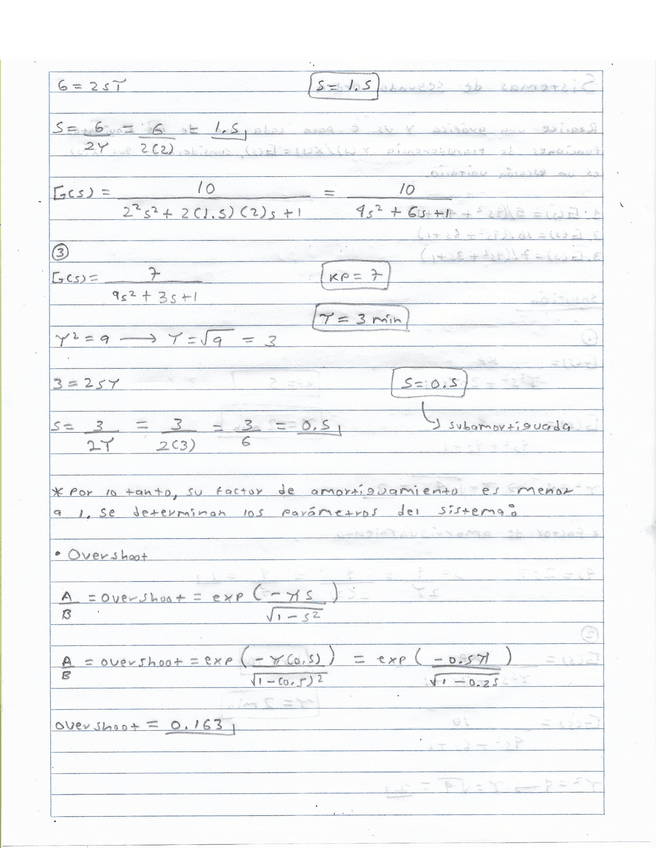 6 = 2ST S = 1.5
S = 6/2T = 6/2(2) = 1.5
G(s) = 10/(2²s² + 2(1.5)(2)s + 1) = 10/(4s² + 6s + 1)
③
G(s) = 7/(9s² + 3s + 1) KP = 7
T = 3 min
T² = 9 → T = √9 = 3
3 = 2ST S = 0.5
S = 3/2T = 3/2(3) = 3/6 = 0.5 ↳ subamortiguada
* Por lo tanto, su factor de amortiguamiento es menor
a 1, se determinan los parámetros del sistema:
• Overshoot
A/B = overshoot = exp(-πS/√1-S²)
A/B = overshoot = exp(-π(0.5)/√1-(0.5)²) = exp(-0.5π/√1-0.25)
overshoot = 0.163